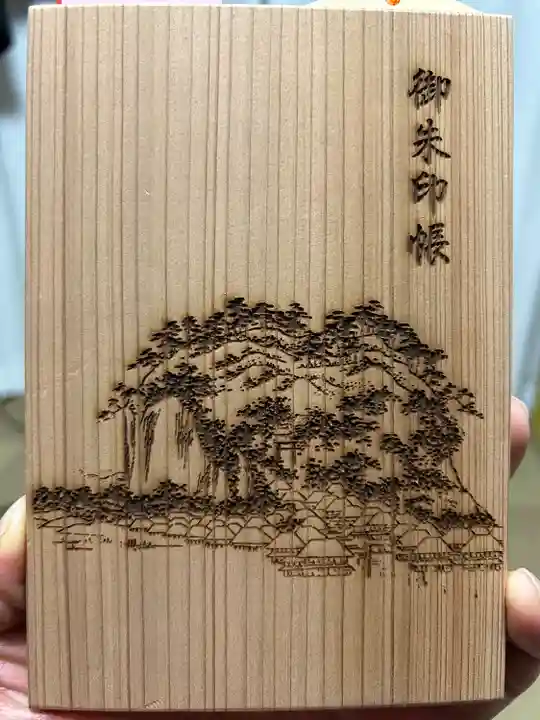 御朱印帳